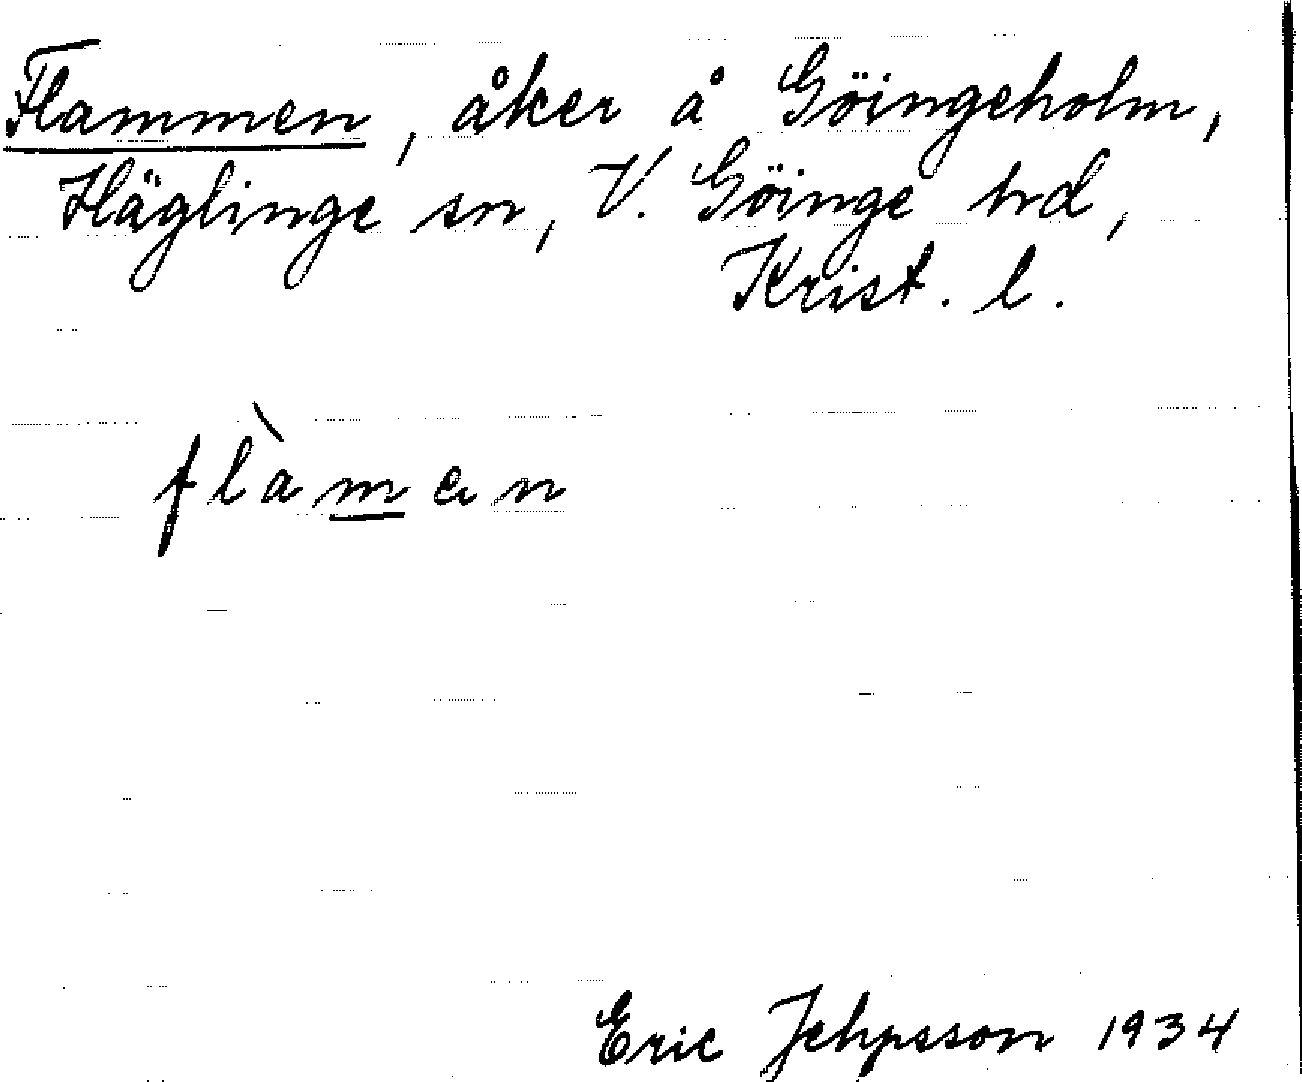 Flammen, åker å Göingeholm,
Häglinge sn, V. Göinge hd,
Krist. l.
flàmen
Eric Jehpsson 1934